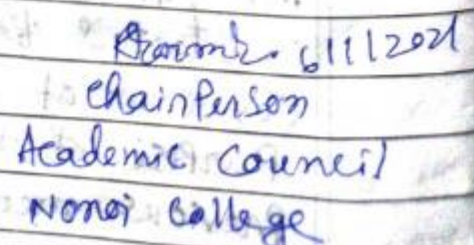 6/1/2021
ChairPerson
Academic Council
Nonoi College